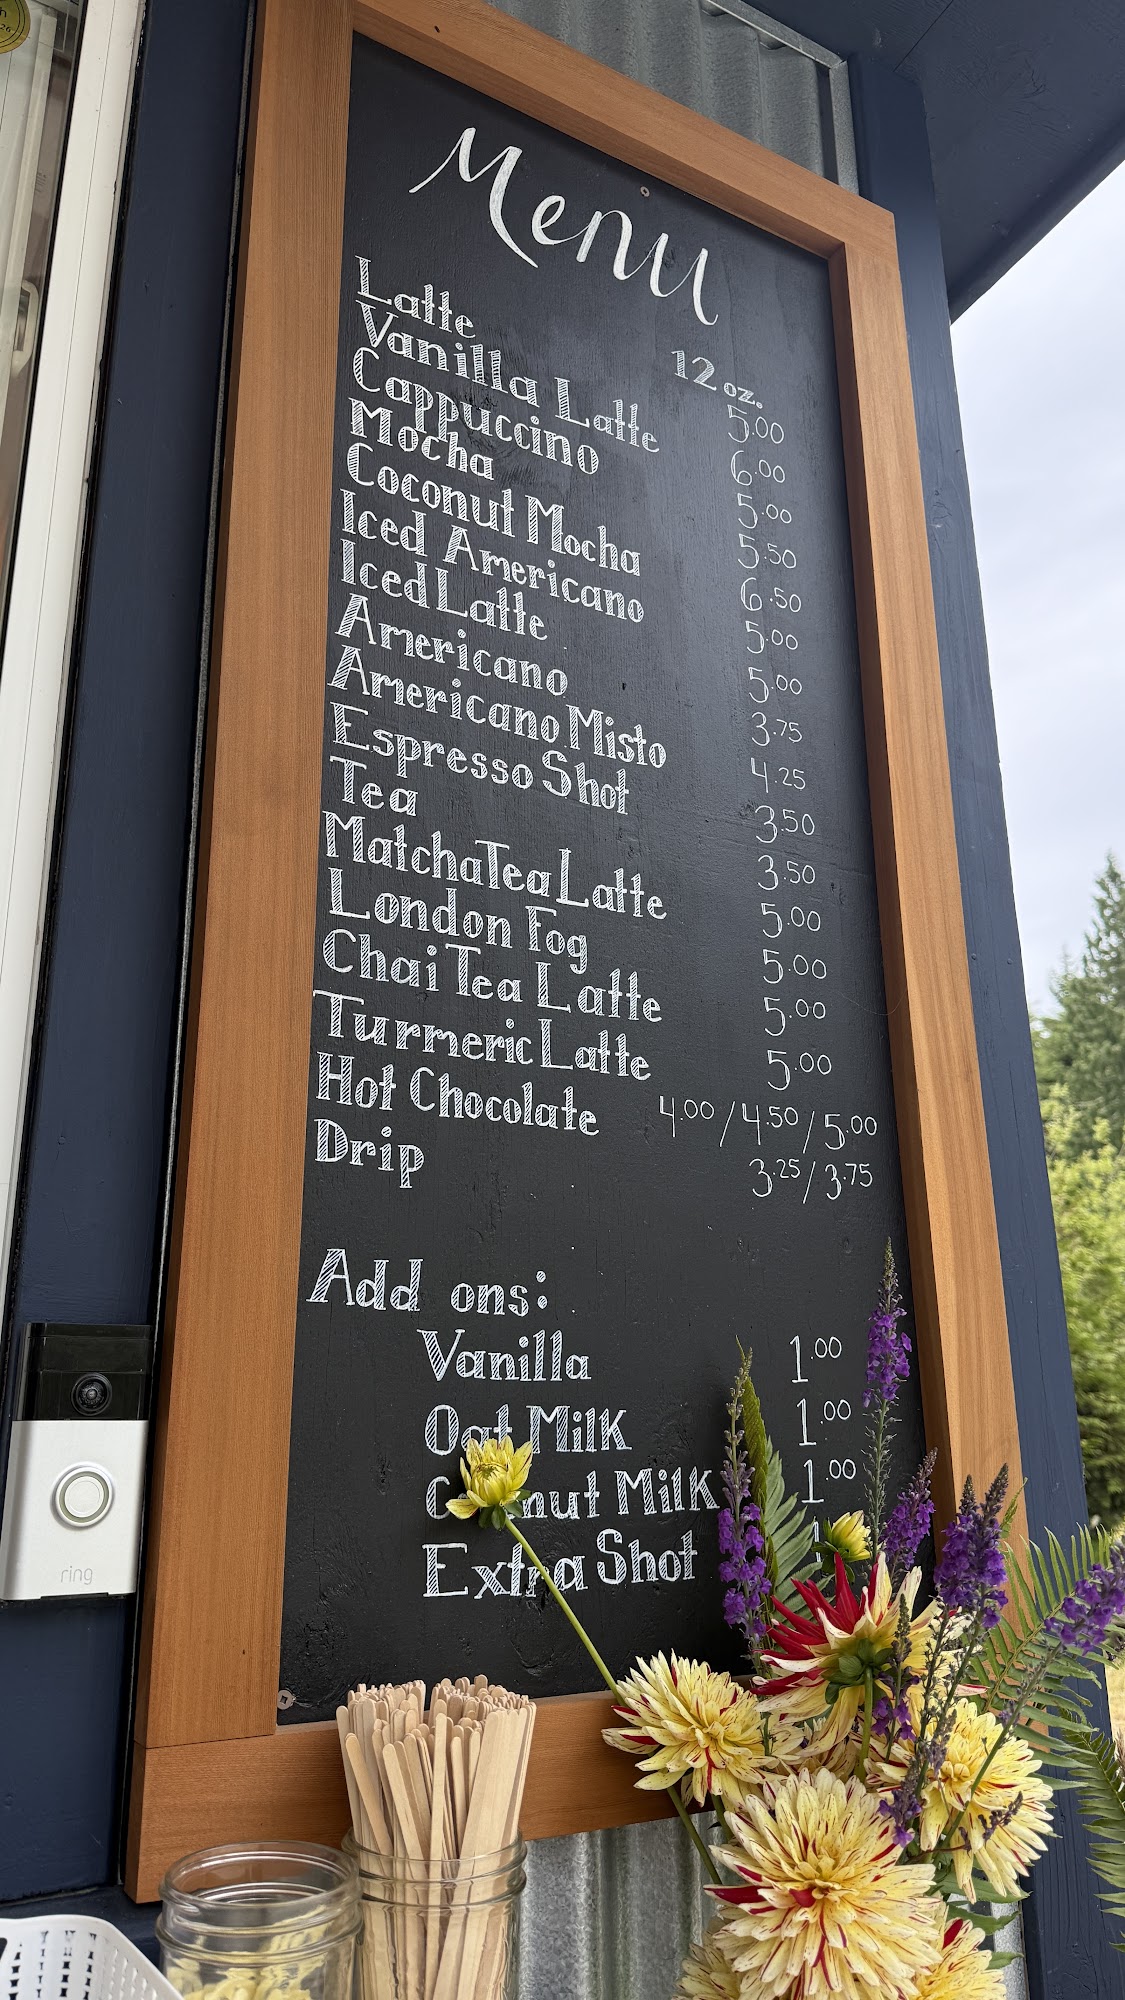 Menu
12 oz.
Latte 5.00
Vanilla Latte 6.00
Cappuccino 5.00
Mocha 5.50
Coconut Mocha 6.50
Iced Americano 5.00
Iced Latte 5.00
Americano 3.75
Americano Misto 4.25
Espresso Shot 3.50
Tea 3.50
Matcha Tea Latte 5.00
London Fog 5.00
Chai Tea Latte 5.00
Turmeric Latte 5.00
Hot Chocolate 4.00/4.50/5.00
Drip 3.25/3.75
Add ons:
Vanilla 1.00
Oat Milk 1.00
Coconut Milk 1.00
Extra Shot
ring